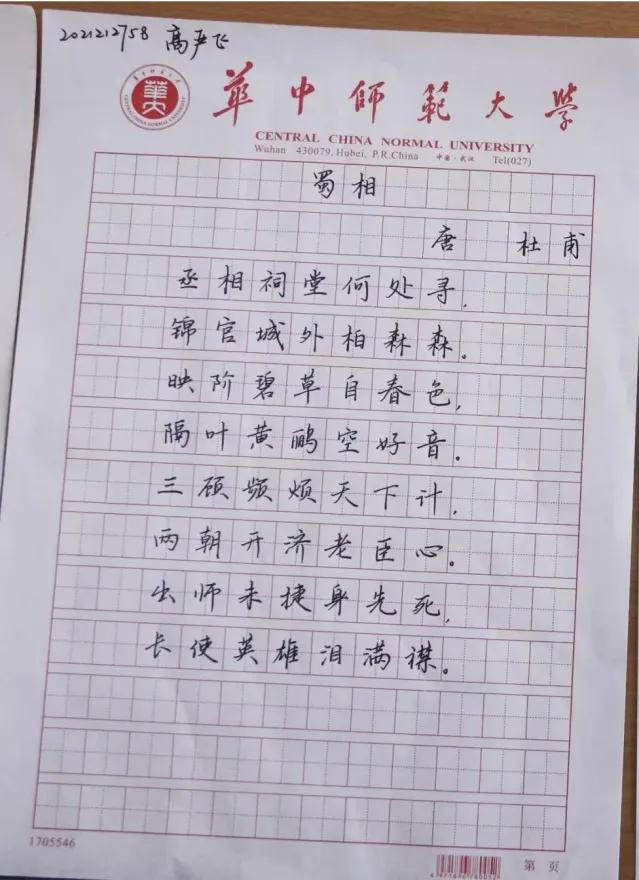 2021212758 高严飞
華中師範大學
CENTRAL CHINA NORMAL UNIVERSITY
Wuhan 430079, Hubei, P.R.China 中国·武汉 Tel(027)
蜀相
唐 杜甫
丞相祠堂何处寻,
锦官城外柏森森。
映阶碧草自春色,
隔叶黄鹂空好音。
三顾频烦天下计,
两朝开济老臣心。
出师未捷身先死,
长使英雄泪满襟。
1705546
第 页